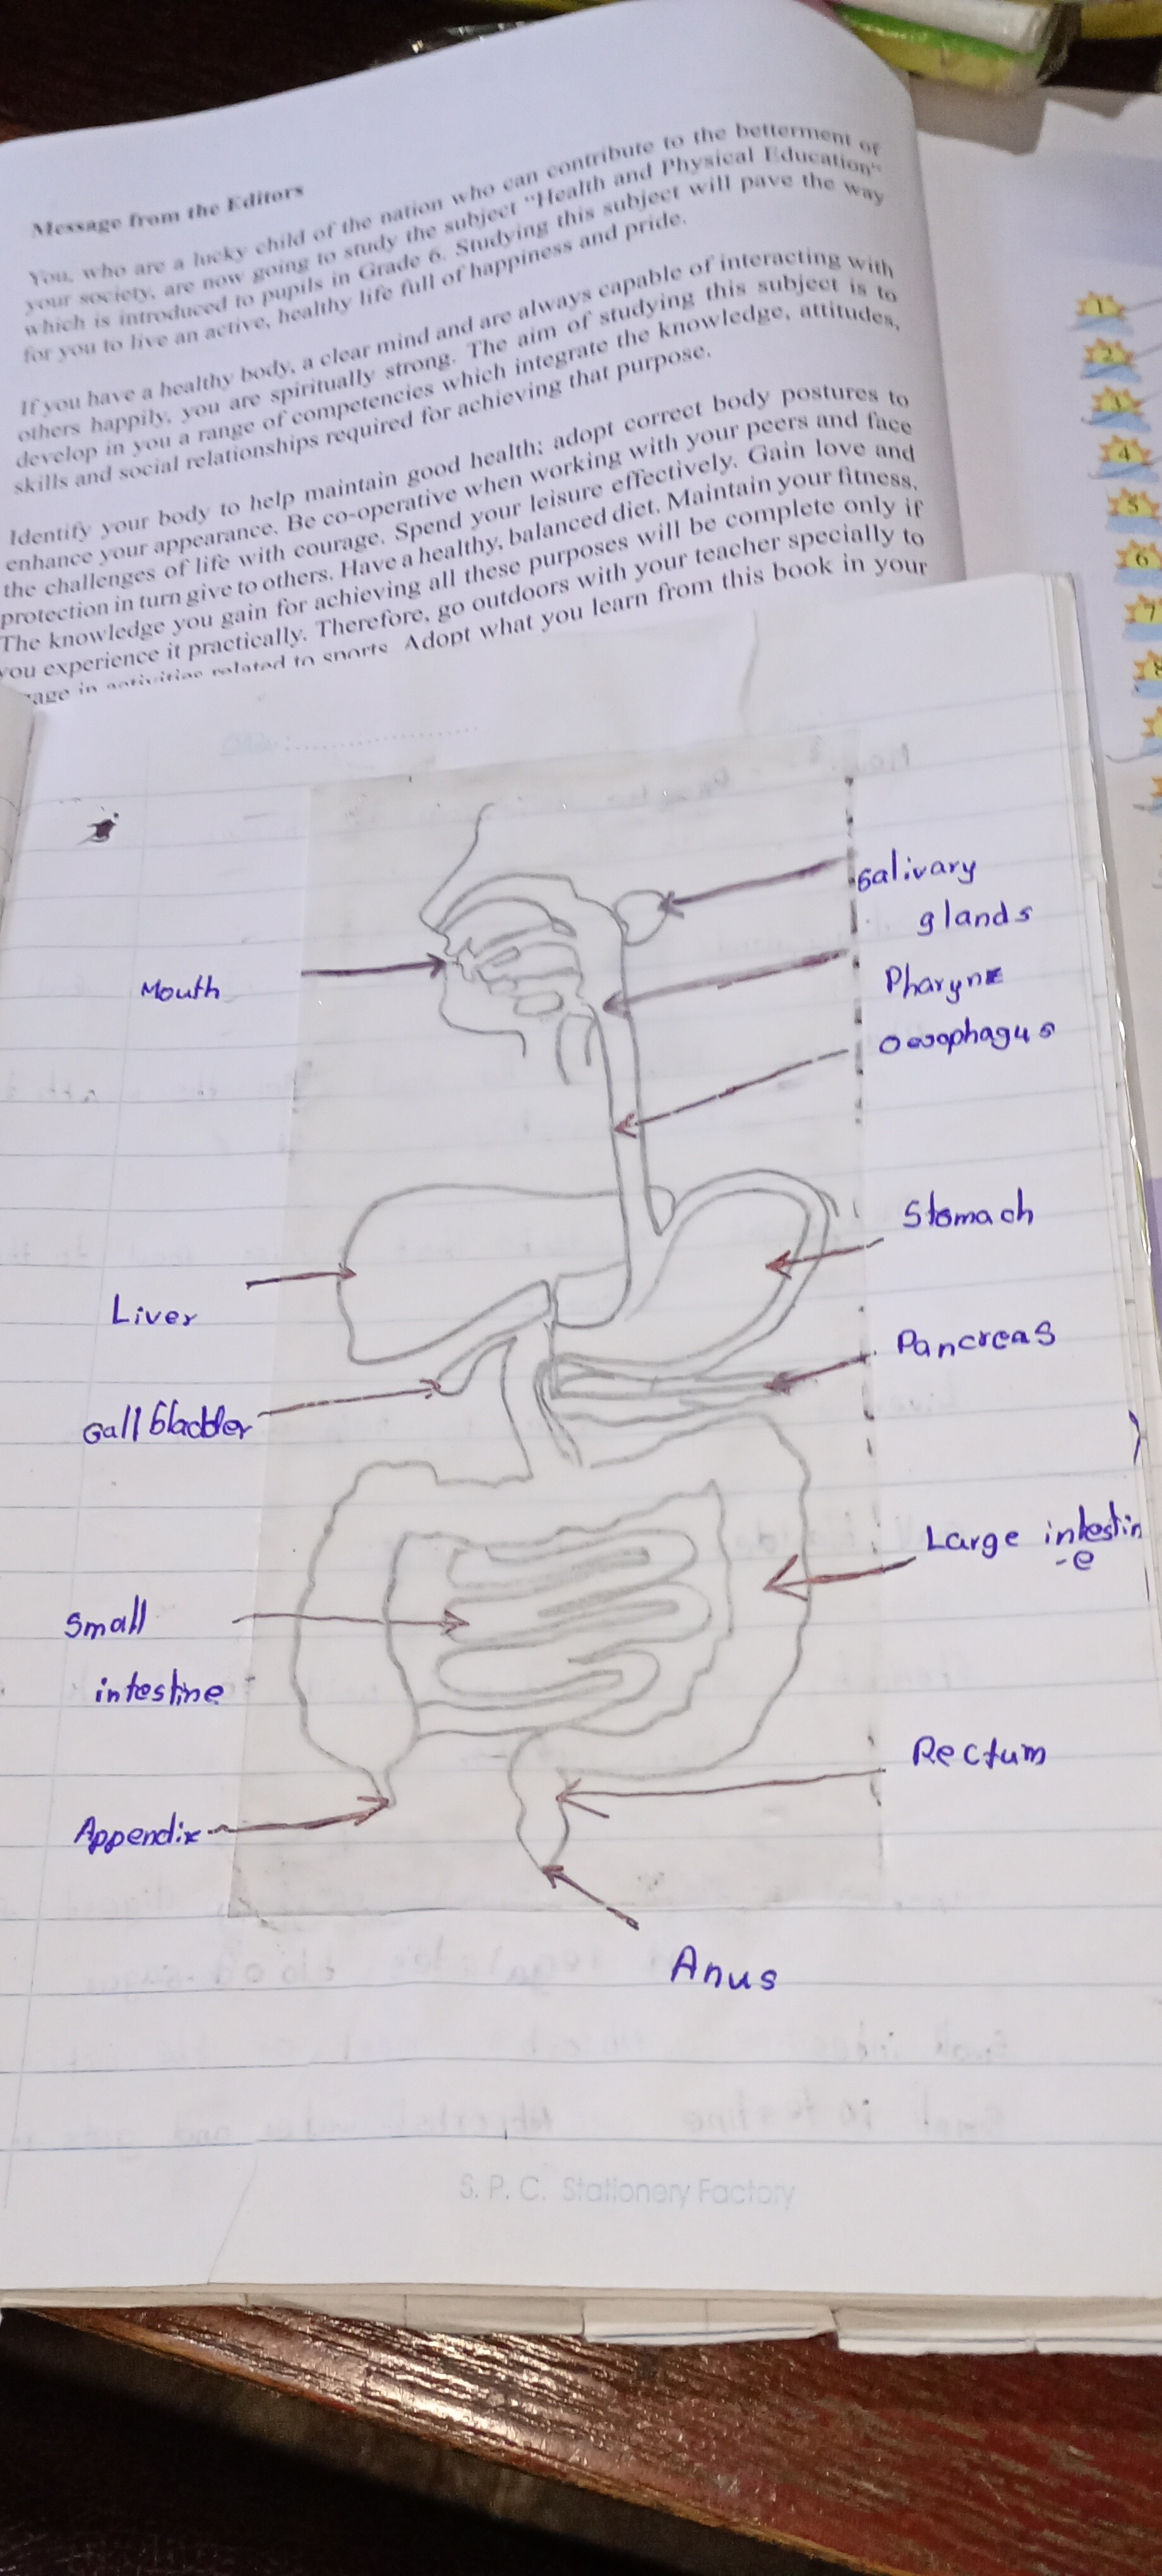 Message from the Editors
You, who are a lucky child of the nation who can contribute to the betterment of
your society, are now going to study the subject "Health and Physical Education"
which is introduced to pupils in Grade 6. Studying this subject will pave the way
for you to live an active, healthy life full of happiness and pride.
If you have a healthy body, a clear mind and are always capable of interacting with
others happily, you are spiritually strong. The aim of studying this subject is to
develop in you a range of competencies which integrate the knowledge, attitudes,
skills and social relationships required for achieving that purpose.
Identify your body to help maintain good health; adopt correct body postures to
enhance your appearance. Be co-operative when working with your peers and face
the challenges of life with courage. Spend your leisure effectively. Gain love and
protection in turn give to others. Have a healthy, balanced diet. Maintain your fitness.
The knowledge you gain for achieving all these purposes will be complete only if
you experience it practically. Therefore, go outdoors with your teacher specially to
in activities related to sports. Adopt what you learn from this book in your
1
2
3
4
5
6
7
8
Salivary
glands
Mouth
Pharynx
Oesophagus
Stomach
Liver
Pancreas
Gall bladder
Large intestin
-e
Small
intestine
Rectum
Appendix
Anus
S. P. C. Stationery Factory